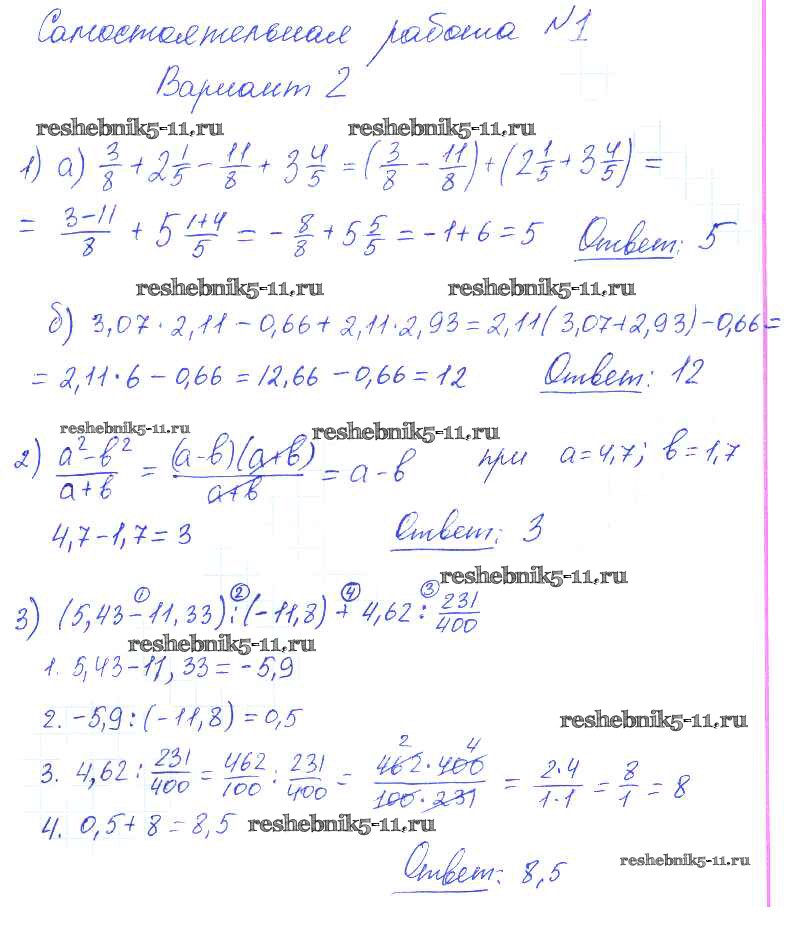 Самостоятельная работа №1
Вариант 2
reshebnik5-11.ru reshebnik5-11.ru
1) а) 3/8 + 2 1/5 - 11/8 + 3 4/5 = (3/8 - 11/8) + (2 1/5 + 3 4/5) =
= (3-11)/8 + 5 (1+4)/5 = - 8/8 + 5 5/5 = -1+6 = 5 Ответ: 5
reshebnik5-11.ru reshebnik5-11.ru
б) 3,07 · 2,11 - 0,66 + 2,11 · 2,93 = 2,11(3,07+2,93) - 0,66 =
= 2,11 · 6 - 0,66 = 12,66 - 0,66 = 12 Ответ: 12
reshebnik5-11.ru reshebnik5-11.ru
2) (a²-b²)/(a+b) = (a-b)(a+b)/(a+b) = a-b при a=4,7; b=1,7
4,7-1,7=3 Ответ: 3
reshebnik5-11.ru
① ② ④ ③
3) (5,43-11,33):(-11,8) + 4,62 : 231/400
reshebnik5-11.ru
1. 5,43-11,33 = -5,9
2. -5,9:(-11,8) = 0,5 reshebnik5-11.ru
2 4
3. 4,62 : 231/400 = 462/100 : 231/400 = (462·400)/(100·231) = (2·4)/(1·1) = 8/1 = 8
4. 0,5+8 = 8,5 reshebnik5-11.ru
Ответ: 8,5 reshebnik5-11.ru